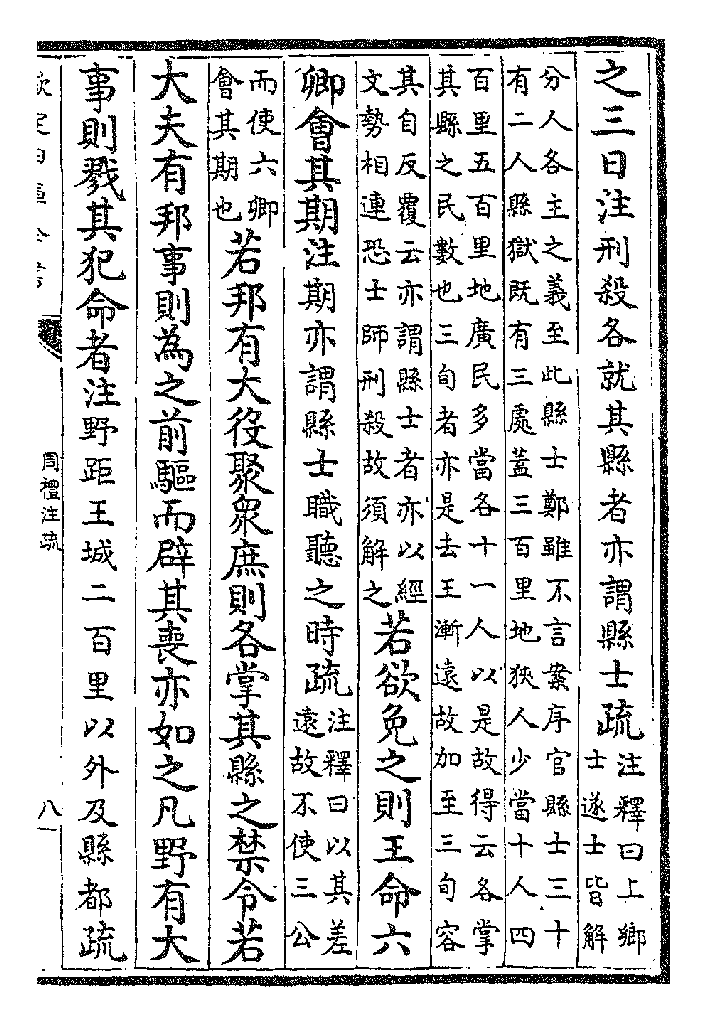 之三日注刑殺各就其縣者亦謂縣士疏
注釋曰上鄉
士遂士皆解
分人各主之義至此縣士鄭雖不言案序官縣士三十
有二人縣獄既有三處蓋三百里地狹人少當十人四
百里五百里地廣民多當各十一人以是故得云各掌
其縣之民數也三旬者亦是去王漸遠故加至三旬容
其自反覆云亦謂縣士者亦以經
文勢相連恐士師刑殺故須解之
若欲免之則王命六
卿會其期注期亦謂縣士職聽之時疏
注釋曰以其差
遠故不使三公
而使六卿
會其期也
若邦有大役聚衆庶則各掌其縣之禁令若
大夫有邦事則為之前驅而辟其喪亦如之凡野有大
事則戮其犯命者注野距王城二百里以外及縣都疏
欽定四庫全書
周禮注疏
八